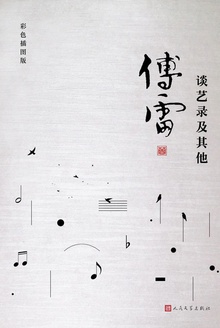 彩色插图版
傅雷
谈艺录及其他
人民文学出版社